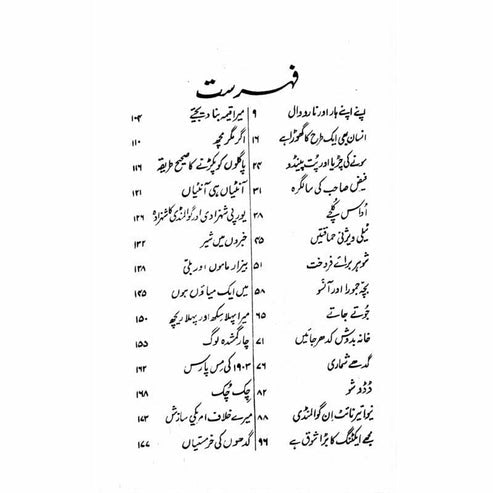 فہرست
اپنے اپنے ہار اور نارووال ۹
انسان بھی ایک طرح کا گھوڑا ہے ۱۶
سونے کی چڑیا اور پُت پینڈو ۲۴
فیض صاحب کی سالگرہ ۳۱
اُداس کُچے ۳۸
ٹیلی ویژنی حماقتیں ۴۵
شوہر برائے فروخت ۵۱
بچّہ جمورا اور آنسو ۵۸
جُوتے جاتے ۶۵
خانہ بدوش کدھر جائیں ۷۱
گدھے شماری ۷۶
ڈڈو شو ۸۲
نیو ائیر نائٹ اِن گوالمنڈی ۸۸
مجھے ایکٹنگ کا بڑا شوق ہے ۹۶
میرا قیمہ بنا دیجئے ۱۰۴
اگر مگر مچھ ۱۱۰
پاگلوں کو پکڑنے کا صحیح طریقہ ۱۱۶
آنٹیاں ہی آنٹیاں ۱۲۱
یورپی شہزادی اور گوالمنڈی کا شہزادہ ۱۲۶
خبروں میں شیر ۱۳۲
بیزار ماموں اور بلّی ۱۳۸
میں ایک میاؤں ہوں ۱۴۵
میرا پہلا سکھ اور پہلا ریچھ ۱۵۰
چار گمشدہ لوگ ۱۵۵
۱۹۰۳ کی مِس پارس ۱۶۲
چِک چُک ۱۶۸
میرے خلاف امریکی سازش ۱۷۳
گدھوں کی خرمستیاں ۱۷۷